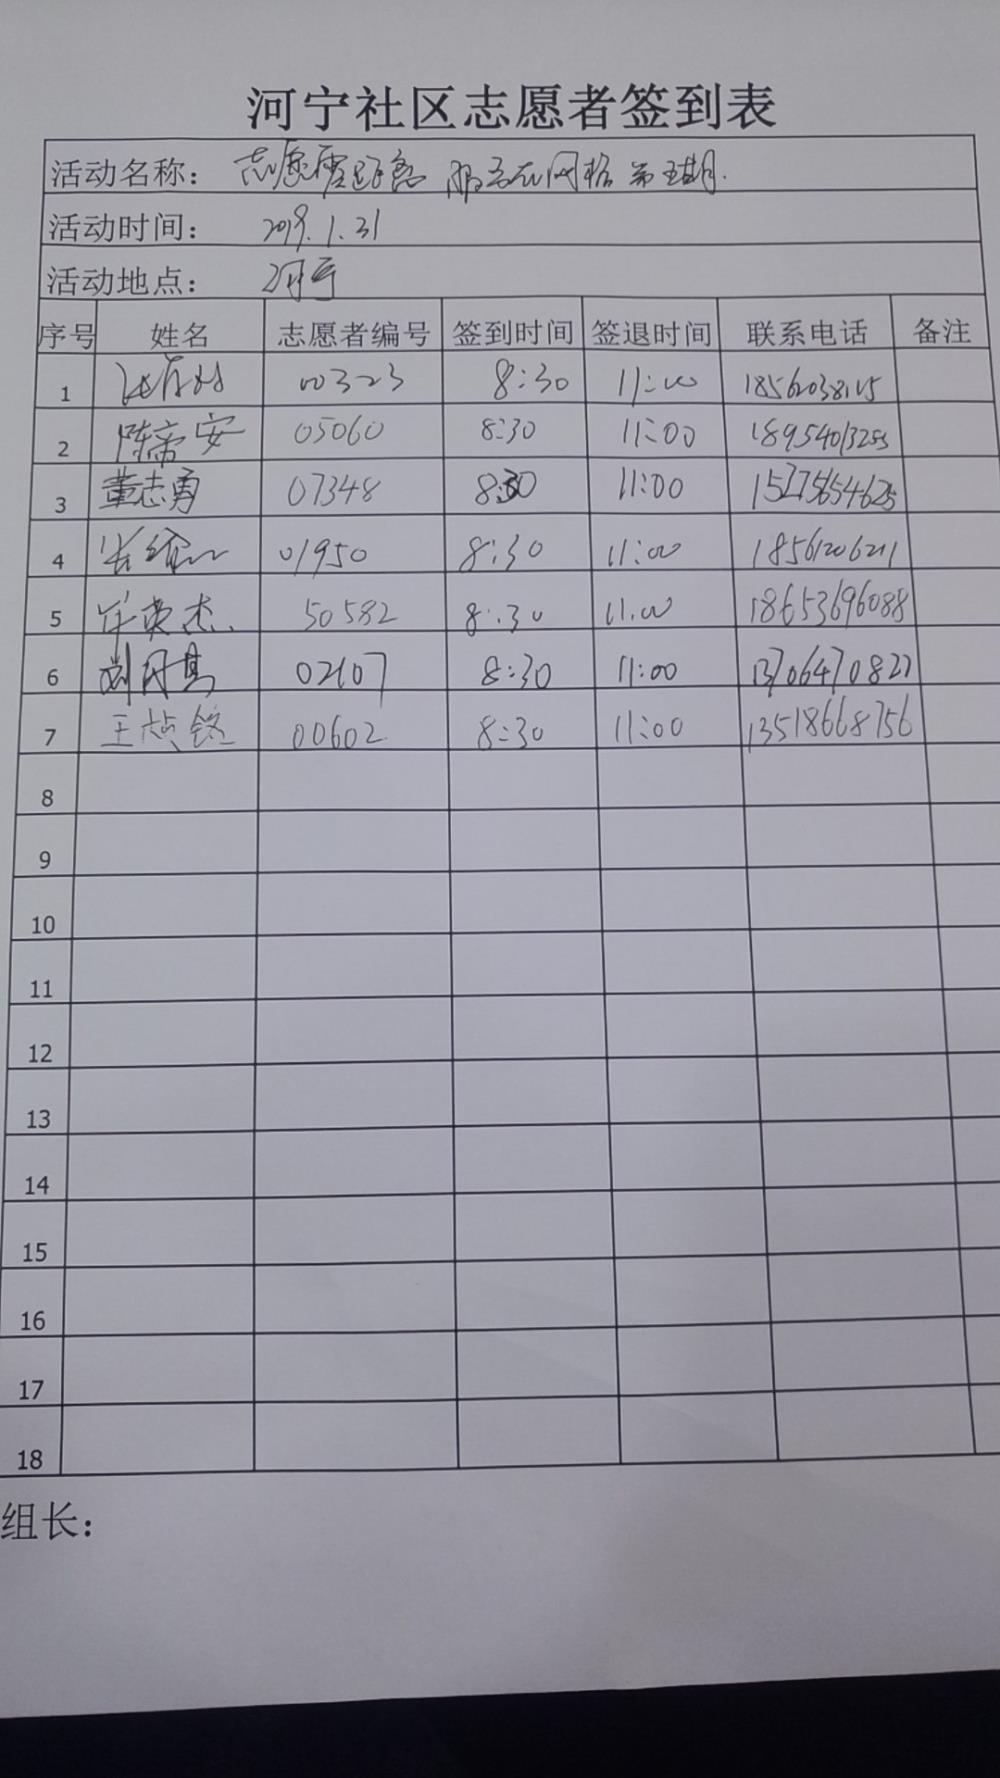 河宁社区志愿者签到表
活动名称： 志愿 服务在网格 第五期.
活动时间： 2019.1.31
活动地点： 河宁
序号 姓名 志愿者编号 签到时间 签退时间 联系电话 备注
1 00323 8:30 11:00
2 陈帝安 05060 8:30 11:00 18954013255
3 董志勇 07348 8:30 11:00 15275654625
4 01950 8:30 11:00 18561206211
5 英杰 50582 8:30 11:00 18653696088
6 02107 8:30 11:00 13706470827
7 王 00602 8:30 11:00 13518668756
8
9
10
11
12
13
14
15
16
17
18
组长：